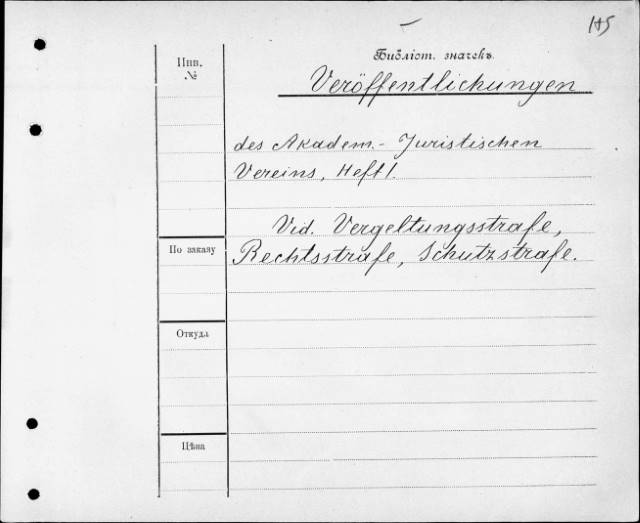 145
Библіот. значекъ
Инв.
№
Veröffentlichungen
des Akadem.- Juristischen
Vereins, Heft 1.
Vid. Vergeltungsstrafe,
По заказу
Rechtsstrafe, Schutzstrafe.
Откуда
Цѣна